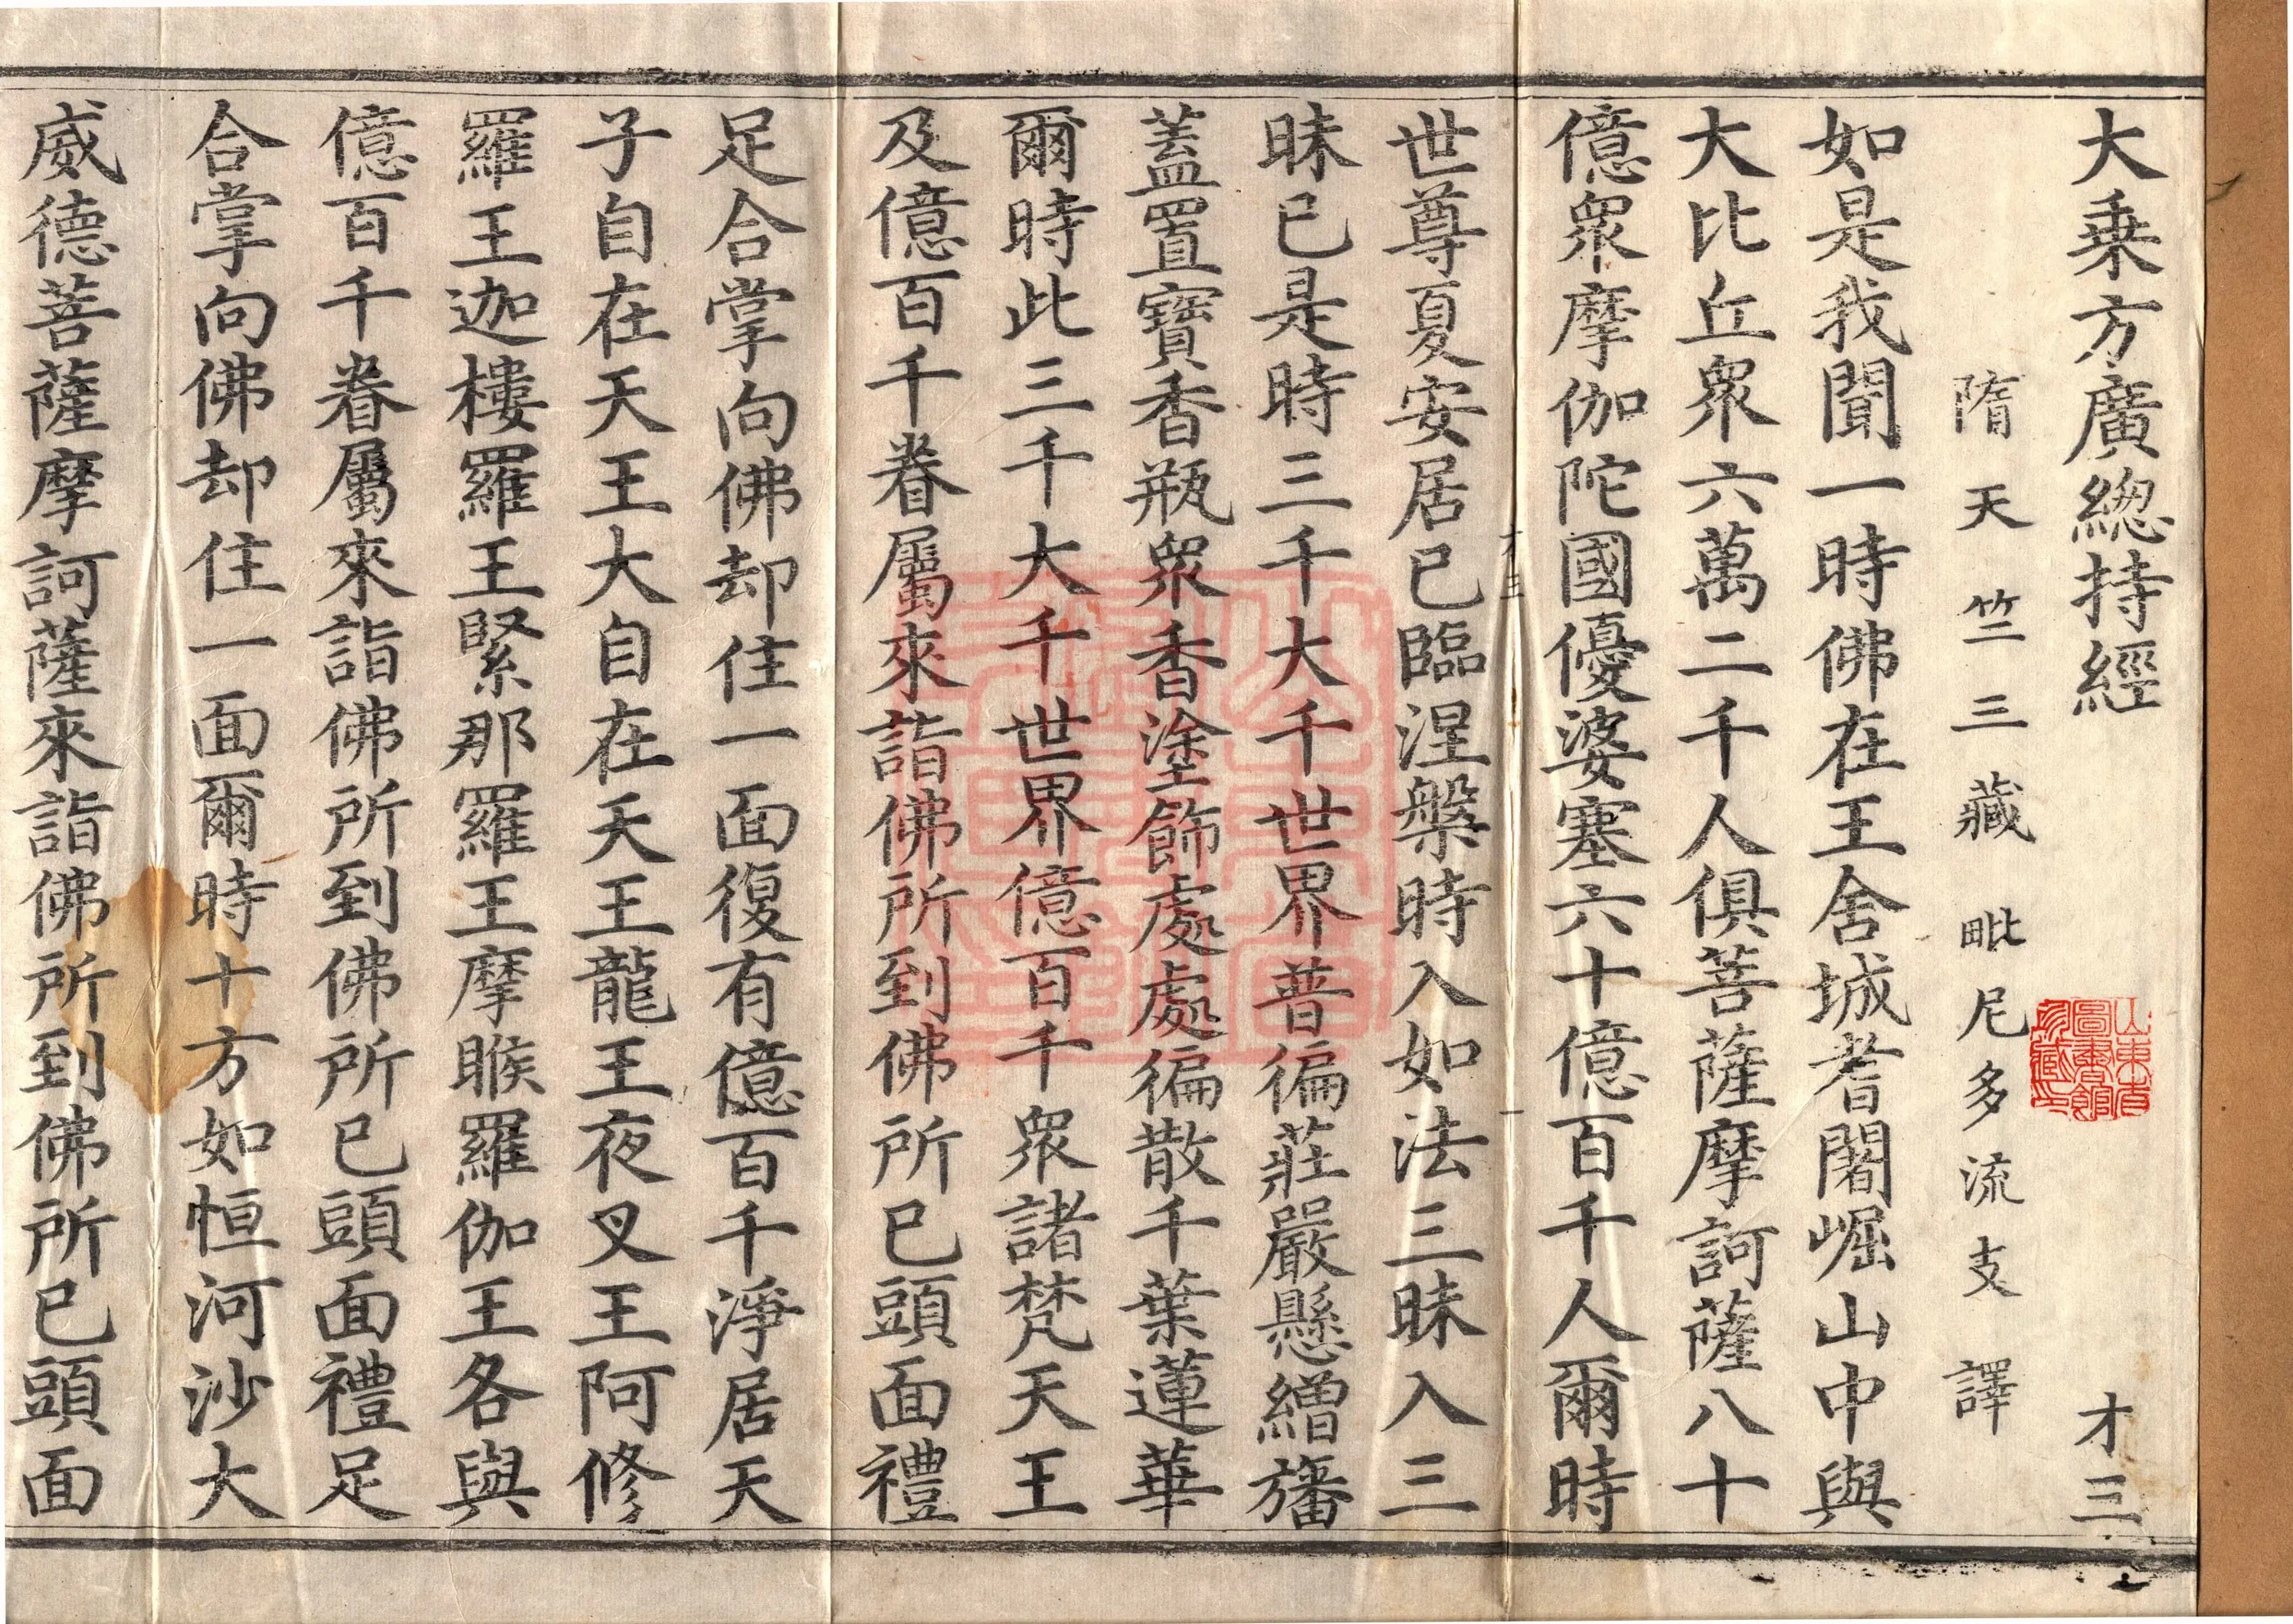 大乗方廣緫持經 才三
隋天竺三藏毗尼多流支譯
如是我聞一時佛在王舍城耆闍崛山中與
大比丘衆六萬二千人俱菩薩摩訶薩八十
億衆摩伽陀國優婆塞六十億百千人爾時
世尊夏安居已臨涅槃時入如法三昧入三
昧已是時三千大千世界普徧莊嚴懸繒旛
蓋置寶香瓶衆香塗飾處處徧散千葉蓮華
爾時此三千大千世界億百千衆諸梵天王
及億百千眷屬來詣佛所到佛所已頭面禮
足合掌向佛却住一面復有億百千淨居天
子自在天王大自在天王龍王夜叉王阿修
羅王迦樓羅王緊那羅王摩睺羅伽王各與
億百千眷屬來詣佛所到佛所已頭面禮足
合掌向佛却住一面爾時十方如恒河沙大
威德菩薩摩訶薩來詣佛所到佛所已頭面
山東省
圖書館
珍藏印